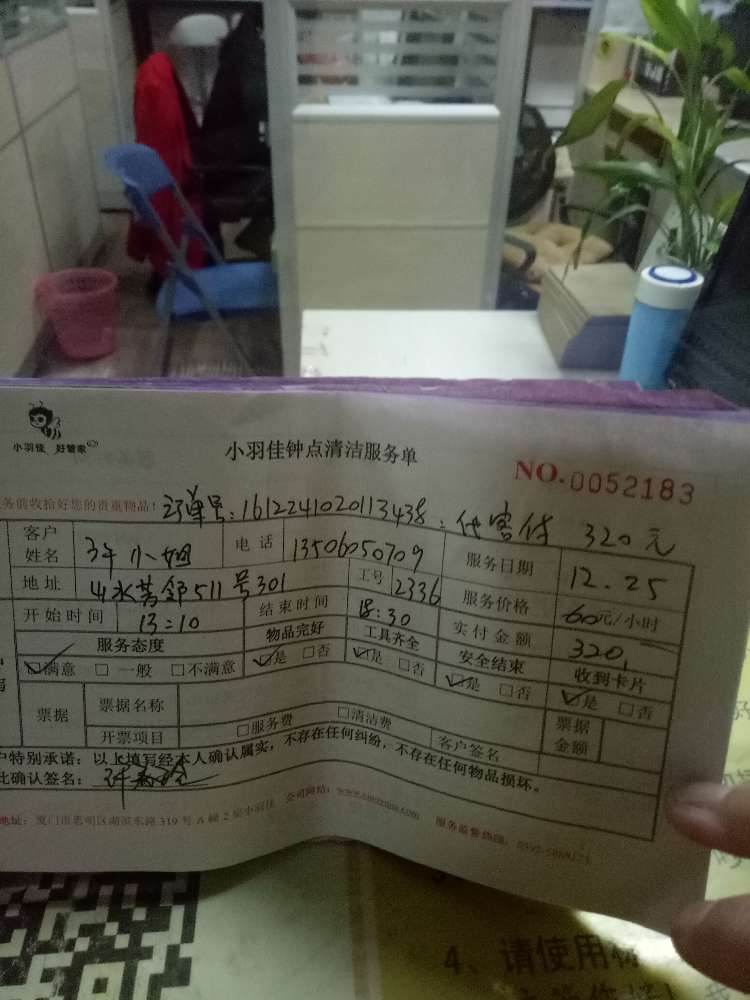 小羽佳 好管家
小羽佳钟点清洁服务单
NO.0052183
务前收拾好您的贵重物品！ 订单号：1612241020113438：代客付 320元
客户姓名 许小姐 电话 13506050709 服务日期 12.25
地址 山水芳邻511号301 工号 2336 服务价格 60元/小时
开始时间 13:10 结束时间 18:30 实付金额 320
服务态度 物品完好 工具齐全 安全结束 收到卡片
满意 一般 不满意 是 否 是 否 是 否 是 否
票据 票据名称 票据金额
开票项目 服务费 清洁费 客户签名
户特别承诺：以上填写经本人确认属实，不存在任何纠纷，不存在任何物品损坏。
此确认签名：
地址：厦门市思明区湖滨东路319号A幢2层小羽佳 公司网站： 服务监督热线：
4、请使用